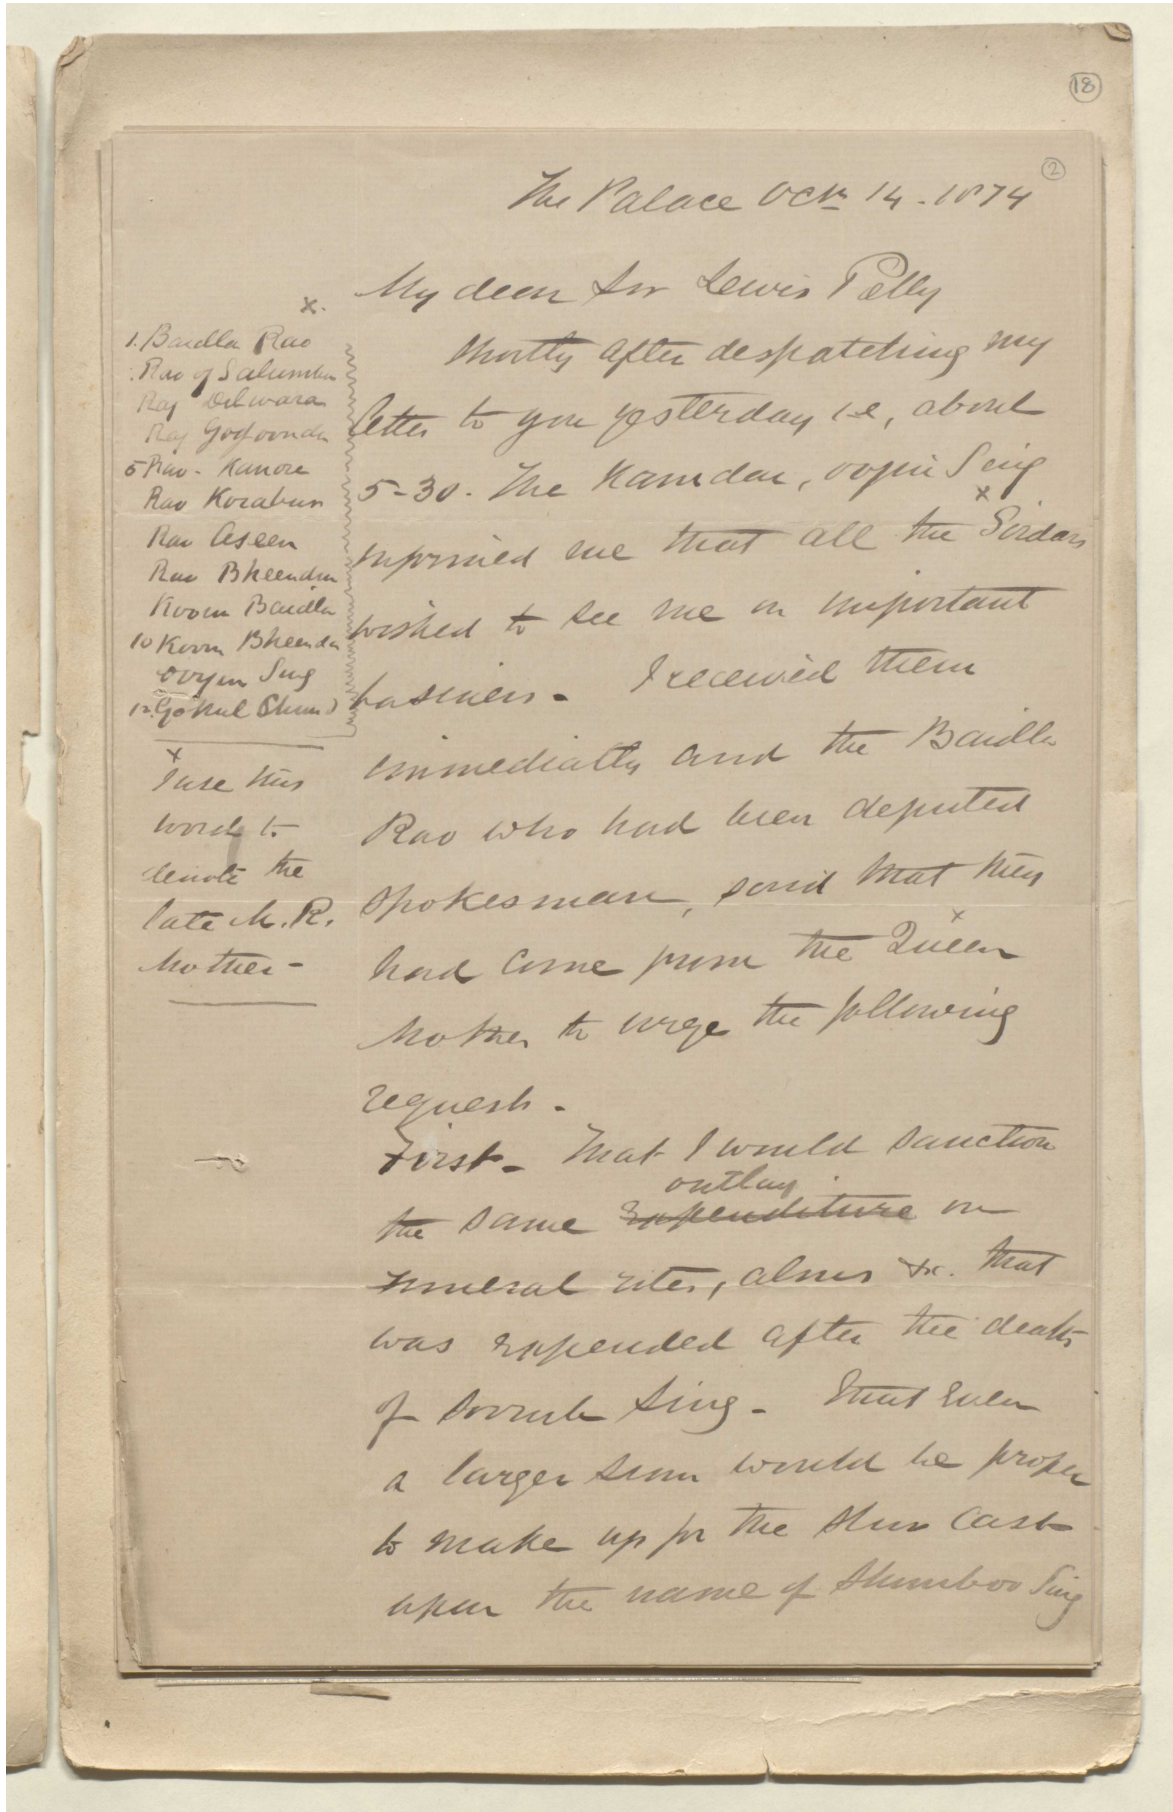 18
2
The Palace Octr 14-1874
My dear Sir Lewis Pelly
Shortly after despatching my
letter to you yesterday i.e, about
5-30. The Kamdar, Oojin Sing
x
informed me that all the Sirdars
wished to see me on important
business - I received them
immediately and the Baidla
Rao who had been deputed
spokesman, said that they
x
had come from the Queen
Mother to urge the following
requests -
First - That I would sanction
outlay
the same expenditure on
funeral rites, alms &c. that
was expended after the death
of Sing - That even
a larger sum would be proper
to make up for the slur cast
upon the name of Shumboo Sing
x.
1. Baidla Rao
Rao of Salumbur
Raj Delwara
Raj Gogoonda
5 Rao - Kanore
Rao Korabur
Rao Aseen
Rao Bheendur
Koour Baidla
10 Koour Bheendur
Oojin Sing
12. Gokul Chund
x
I use this
word to
denote the
late M. R.
Mother -